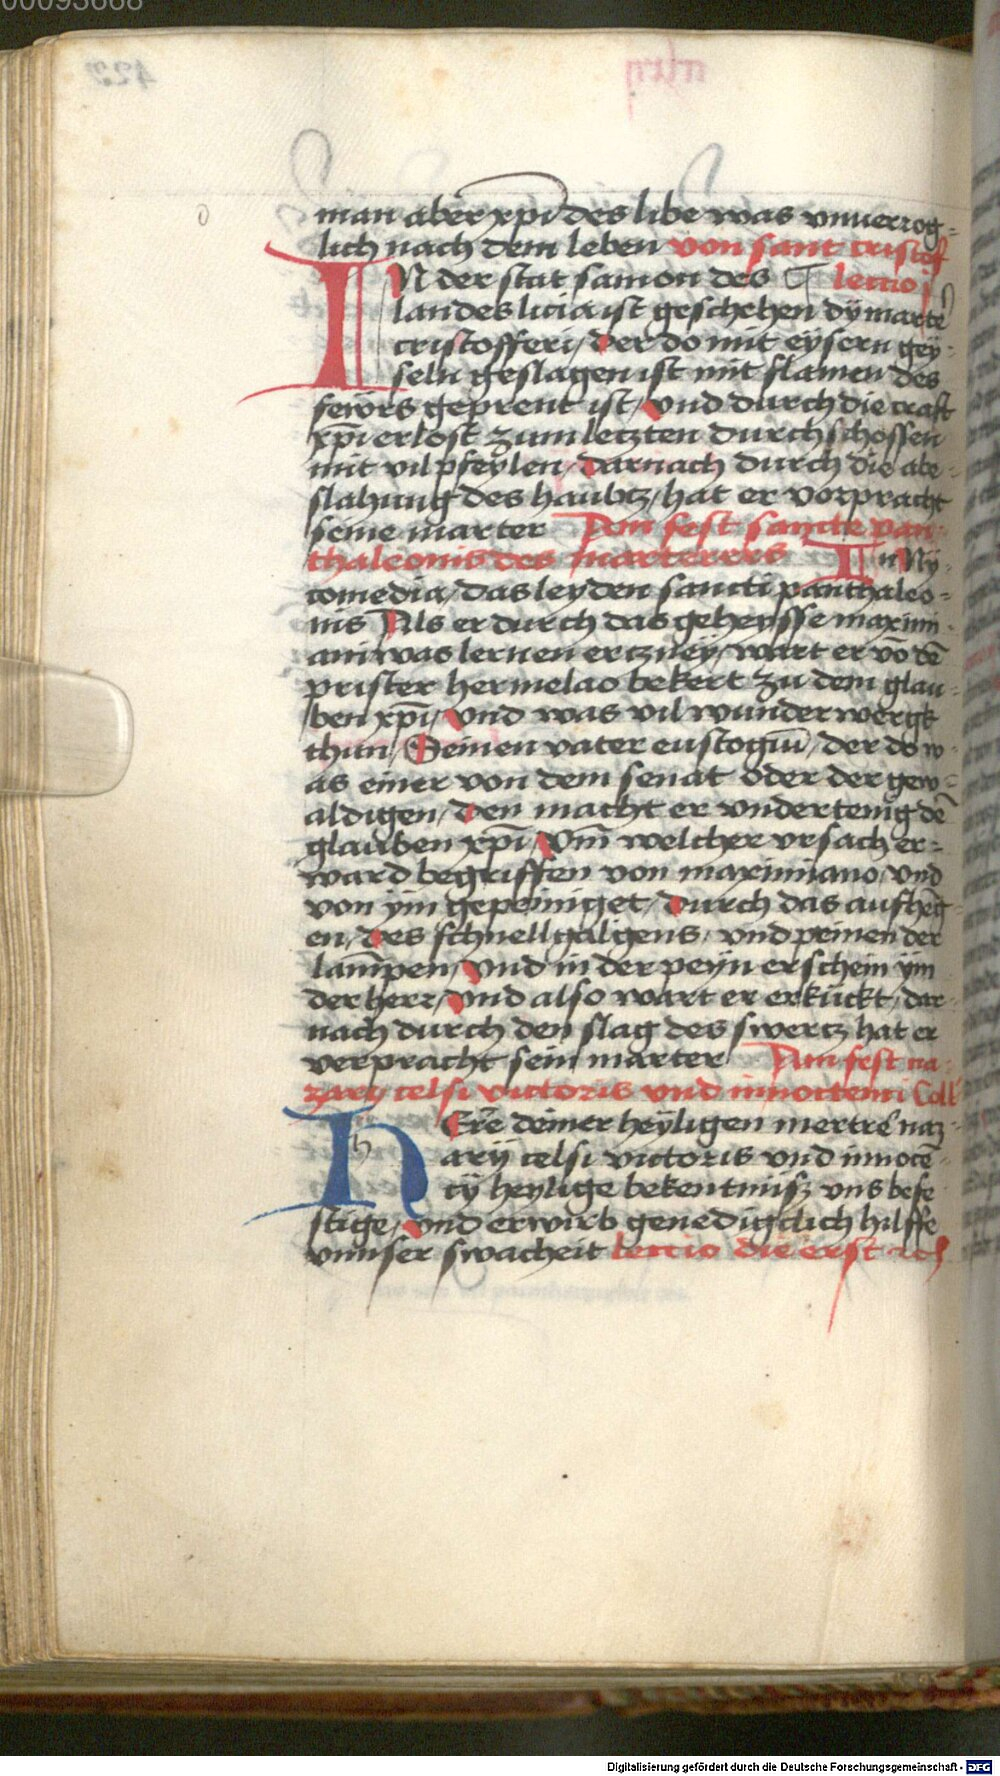 00093668
man aber xp̄i des libe was vnuerzog=
lich nach dem leben von sant cristof
IN der stat samon des lectio j
landes licia ist geschehen dÿ marter
cristofferi / der do mit eÿsern geÿ=
seln geslagen ist mit flamen des
fewrs geprent ist / vnd durch die craft
xp̄i erlost zum letzten durchschossen
mit vil pfeylen / darnach durch die abe=
slahung des haubtz / hat er vorpracht
seine marter Am fest sancte pan=
thaleonis des marterers In Nÿ=
comedia / das leyden sancti panthaleo=
nis Als er durch das geheysse maximi=
ani was lernen ercznëy / wart er vō dē
prister hermelao bekert zu dem glau=
ben xp̄i / vnd was vil wunderwergk
thun / Seinen vater eustogiū / der do w=
as einer von dem senat oder der gew=
aldigen / den macht er vndertenig dē
glauben xp̄i / vm̄ welcher vrsach er=
ward begriffen von maximiano / vnd
von ÿm gepeiniget / durch das aufhēg=
en / des schnellgalgens / vnd peinen der
lam̄pen / vnd in der peyn erschein ÿm
der herr / vnd also wart er erkückt / dar=
nach durch den slag des swertz hat er
verpracht sein marter Am fest na=
zarÿ celsi victoris vnd innocenti Coll
HEre deiner heÿligen mertrē naz=
arÿ celsi victoris vnd innocē=
cÿ heylige bekentniß vns befe
stige / vnd erwirb genediglich hilffe
vnnser swacheit lectio die erst
Digitalisierung gefördert durch die Deutsche Forschungsgemeinschaft - DFG